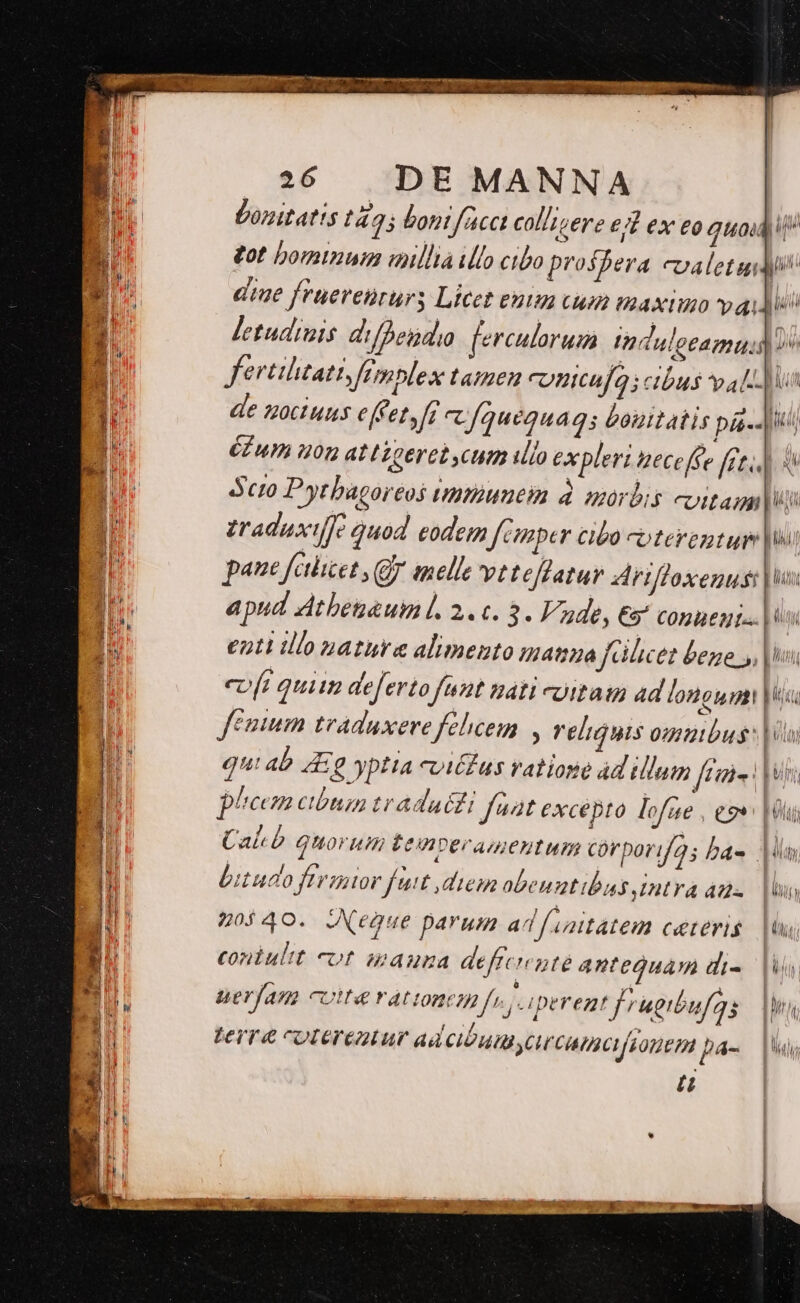 26 DE MANNA
bonitatis tāq; boni ſucci colligere eſt ex eo quod
tot hominum millia illo cibo proſpera valetu-
dine fruerentur; Licet enim cum maximo va-
letudinis diſpendio ferculorum indulgeamus
fertilitati, ſimplex tamen vnicuſq; cibus val-
de nociuus eſſet, ſi vſquequaq; bonitatis pū-
ctum non attigeret, cum illo expleri neceſſe ſit.
Scio Pythagoreos immunem à morbis vitam
traduxiſſe quod eodem ſemper cibo vterentur
pane ſcilicet, & melle vt teſtatur Ariſtoxenus
apud Atheneum l. 2. c. 3. Vnde, & conueni-
enti illo naturæ alimento manna ſcilicet bene,
vſi quiin deſerto ſunt nati vitam ad longum
ſenium traduxere felicem, reliquis omnibus
qui ab Ægyptia victus ratione ad illum ſim-
plicem cibum traducti ſunt excepto Ioſue, &
Caleb quorum temperamentum corporiſq; ha-
bitudo firmior fuit, diem obeuntibus, intra an-
nos 40. Neque parum ad ſanitatem cæteris
contulit vt manna deſſiciente antequam di-
uerſam vitæ rationem ſuſciperent frugibuſq;
terræ vterentur ad cibum, circumciſionem pa-
ti